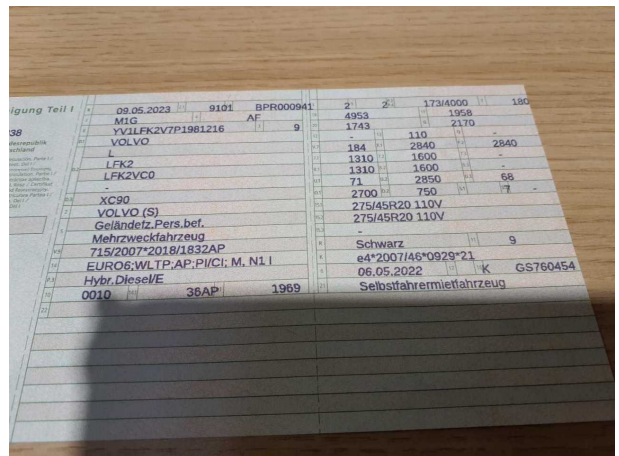 igung Teil I
38
desrepublik
schland
09.05.2023 9101 BPR000941
M1G AF
YV1LFK2V7P1981216 9
VOLVO
L
LFK2
LFK2VC0
-
XC90
VOLVO (S)
Geländefz.Pers.bef.
Mehrzweckfahrzeug
715/2007*2018/1832AP
EURO6;WLTP;AP;PI/CI; M, N1 I
Hybr.Diesel/E
0010 36AP 1969
22
2 2 173/4000 180
4953 1958
1743 2170
- 110 -
184 2840 2840
1310 1600 -
1310 1600 -
71 2850 68
2700 750 7 -
275/45R20 110V
275/45R20 110V
-
Schwarz 9
e4*2007/46*0929*21
06.05.2022 K GS760454
Selbstfahrermietfahrzeug